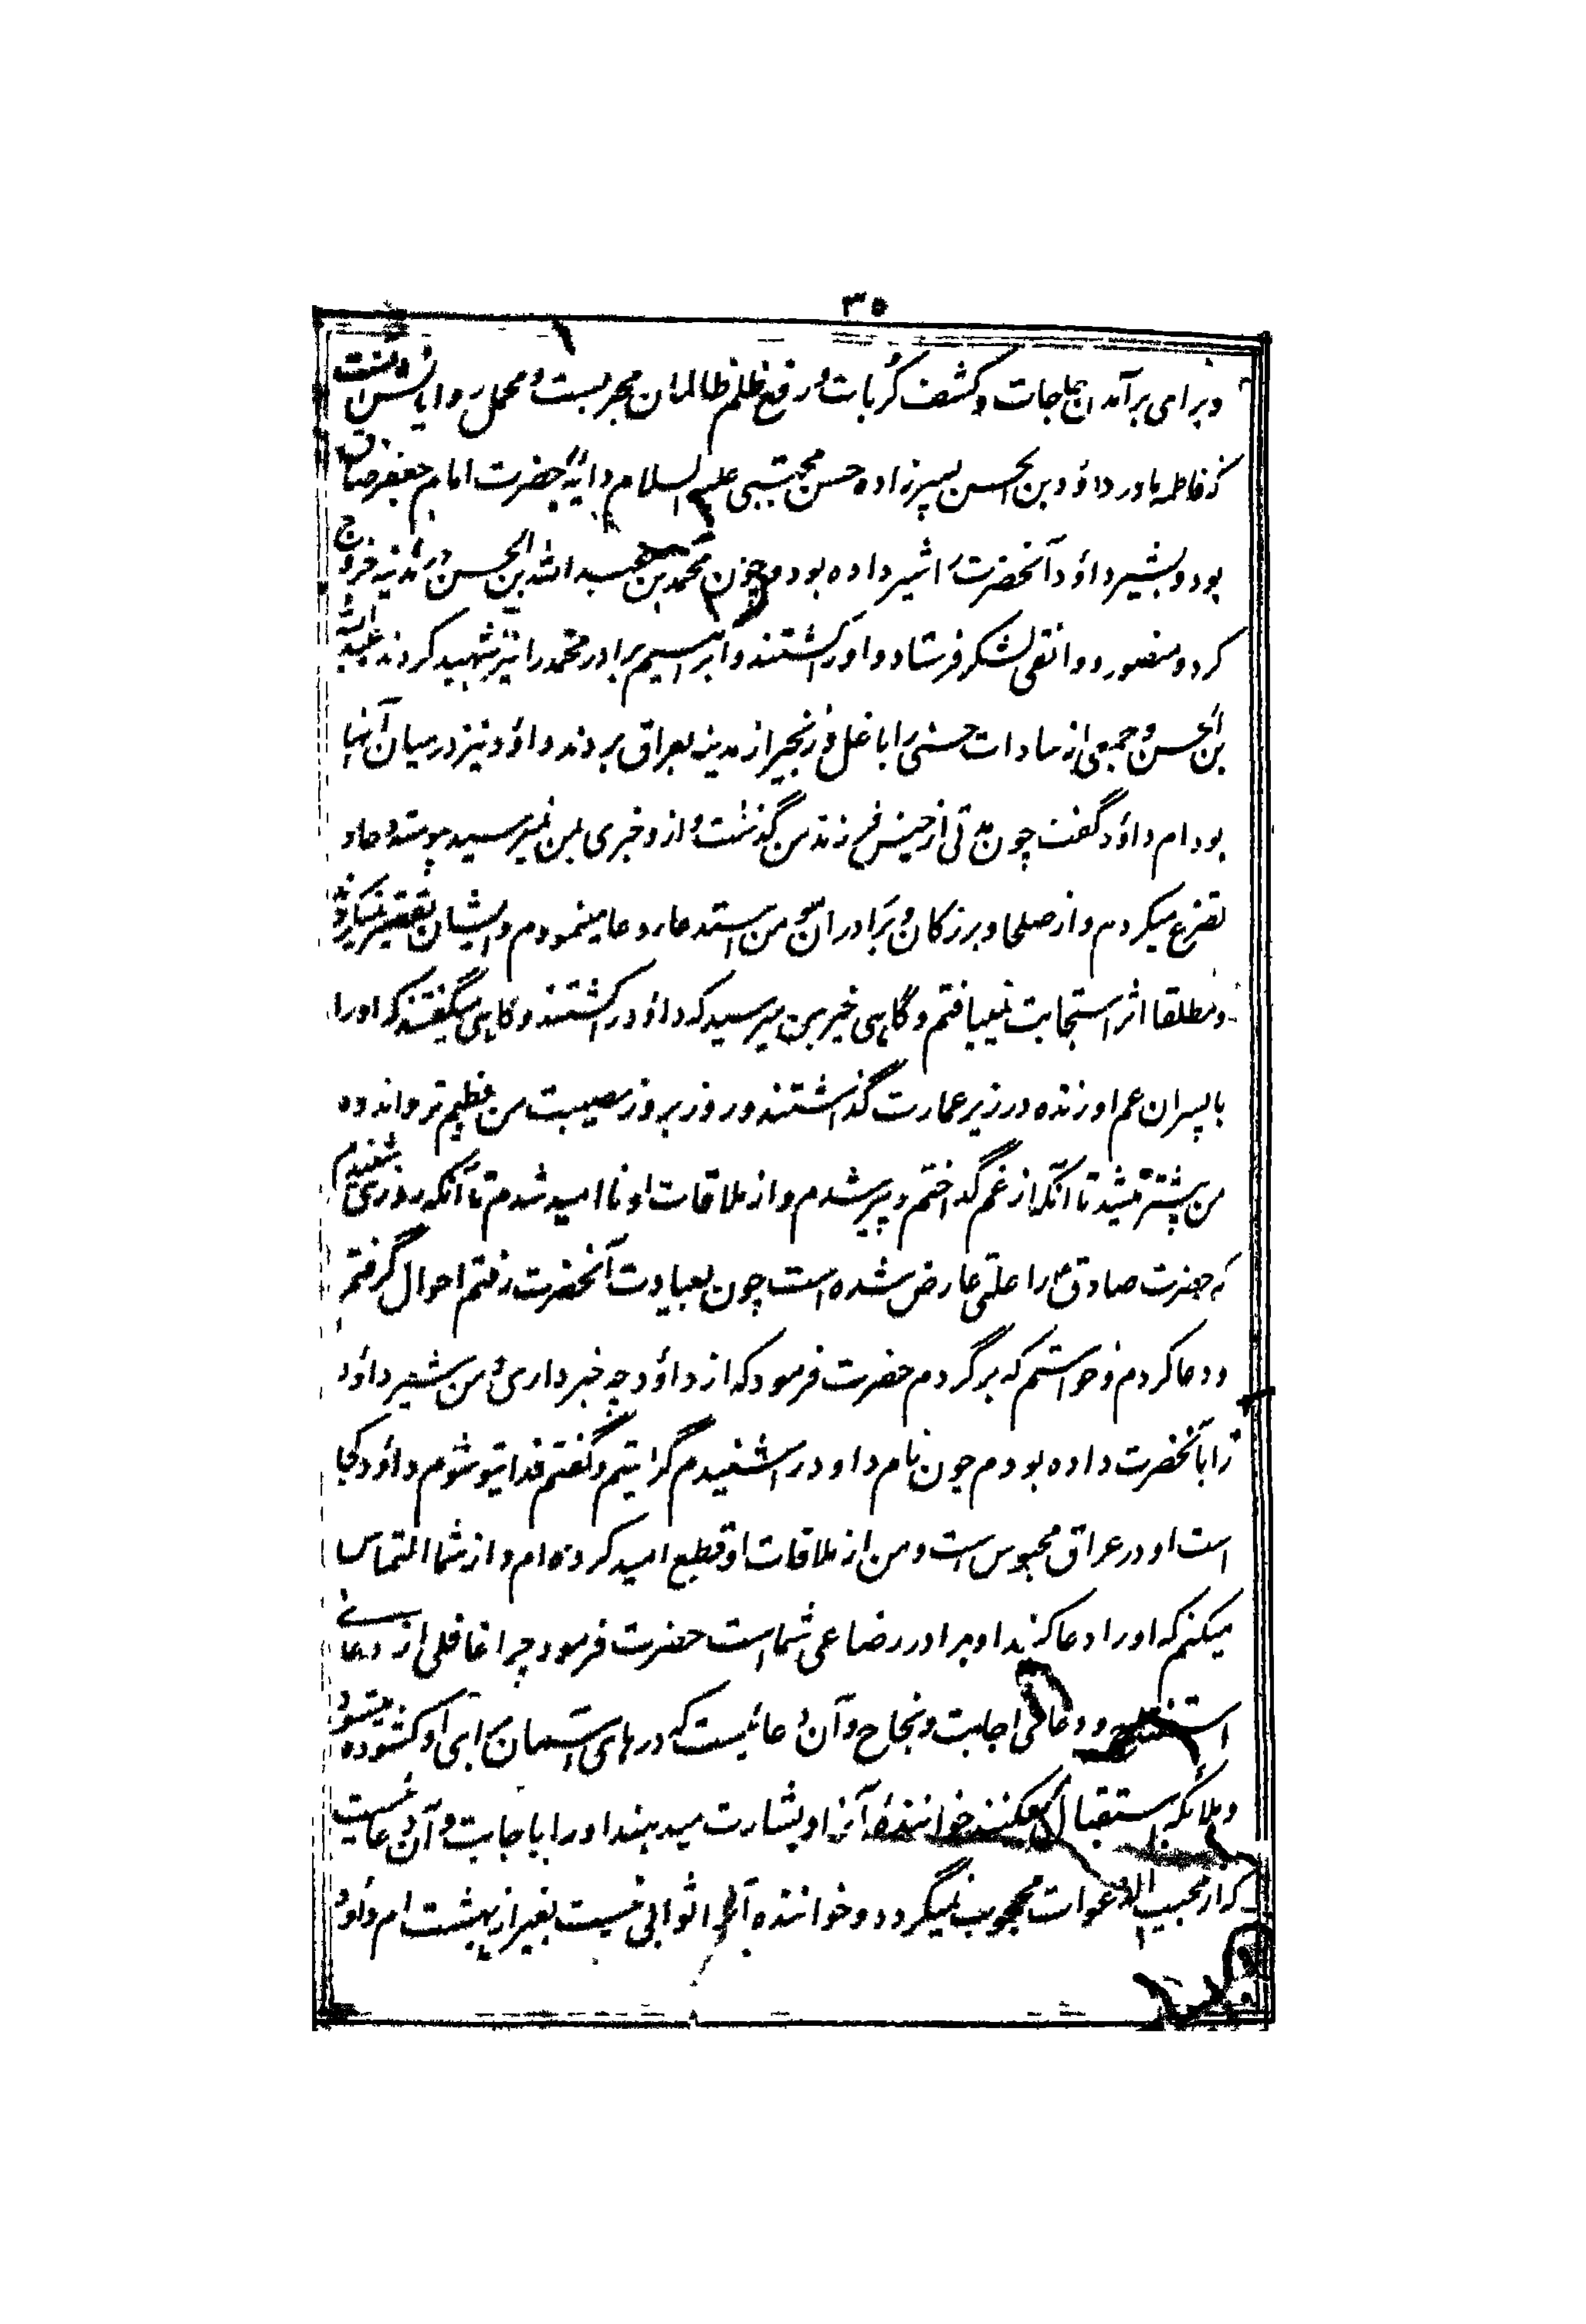 ۳۵
و برای برآمدن حاجات و کشف کربات و رفع ظلم ظالمان مجربست و مجمل روایاتش اینست
که فاطمه مادر داؤد بن الحسن پسرزاده حسن مجتبی علیه السلام دایهٔ حضرت امام جعفر صادق
بود و بشیر داؤد آنحضرت را شیر داده بود و چون محمد بن عبد الله بن الحسن در مدینه خروج
کرد و منصور دوانقی لشکر فرستاد و او را کشتند و ابراهیم برادر محمد را نیز شهید کردند عبد الله
بن الحسن و جمعی از سادات حسنی را با غل و زنجیر از مدینه بعراق بردند داؤد نیز در میان آنها
بود ام داؤد گفت چون مدتی از حبس فرزند من گذشت و از و خبری بمن نمیرسید پیوسته دعا و
تضرع میکردم و از صلحا و بزرکان و برادران مومن استدعاء دعا مینمودم و ایشان تقصیر نمیکردند
و مطلقا اثر استجابت نمییافتم و گاهی خبر بمن میرسید که داؤد را کشتند و گاهی میگفتند که او را
با پسران عم او زنده در زیر عمارت گذاشتند و روز بروز مصیبت من عظیم تر و اندوه
من بیشتر میشد تا آنکه از غم گداختم و پیر شدم و از ملاقات او ناامید شدم تا آنکه روزی شنیدم
که حضرت صادق ع را علتی عارض شده است چون بعیادت آنحضرت رفتم احوال گرفتم
و دعا کردم و خواستم که برگردم حضرت فرمود که از داؤد چه خبر داری و من بشیر داؤد
را بآنحضرت داده بودم چون نام داود را شنیدم گرایستم و گفتم فدایتو شوم داؤد کجا
است او در عراق محبوس است و من از ملاقات او قطع امید کرده ام و از شما التماس
میکنم که او را دعا کنید او برادر رضاعی شما است حضرت فرمود چرا غافلی از دعای
استفتاح و دعای اجابت و نجاح و آن دعائیست که درهای آسمان برای او کشوده میشود
و ملائکه استقبال میکنند خوانندهٔ آنرا و بشارت میدهند او را باجابت و آن دعائیست
که از مجیب الدعوات محجوب نمیگردد و خواننده آنرا ثوابی نیست بغیر از بهشت ام داؤد